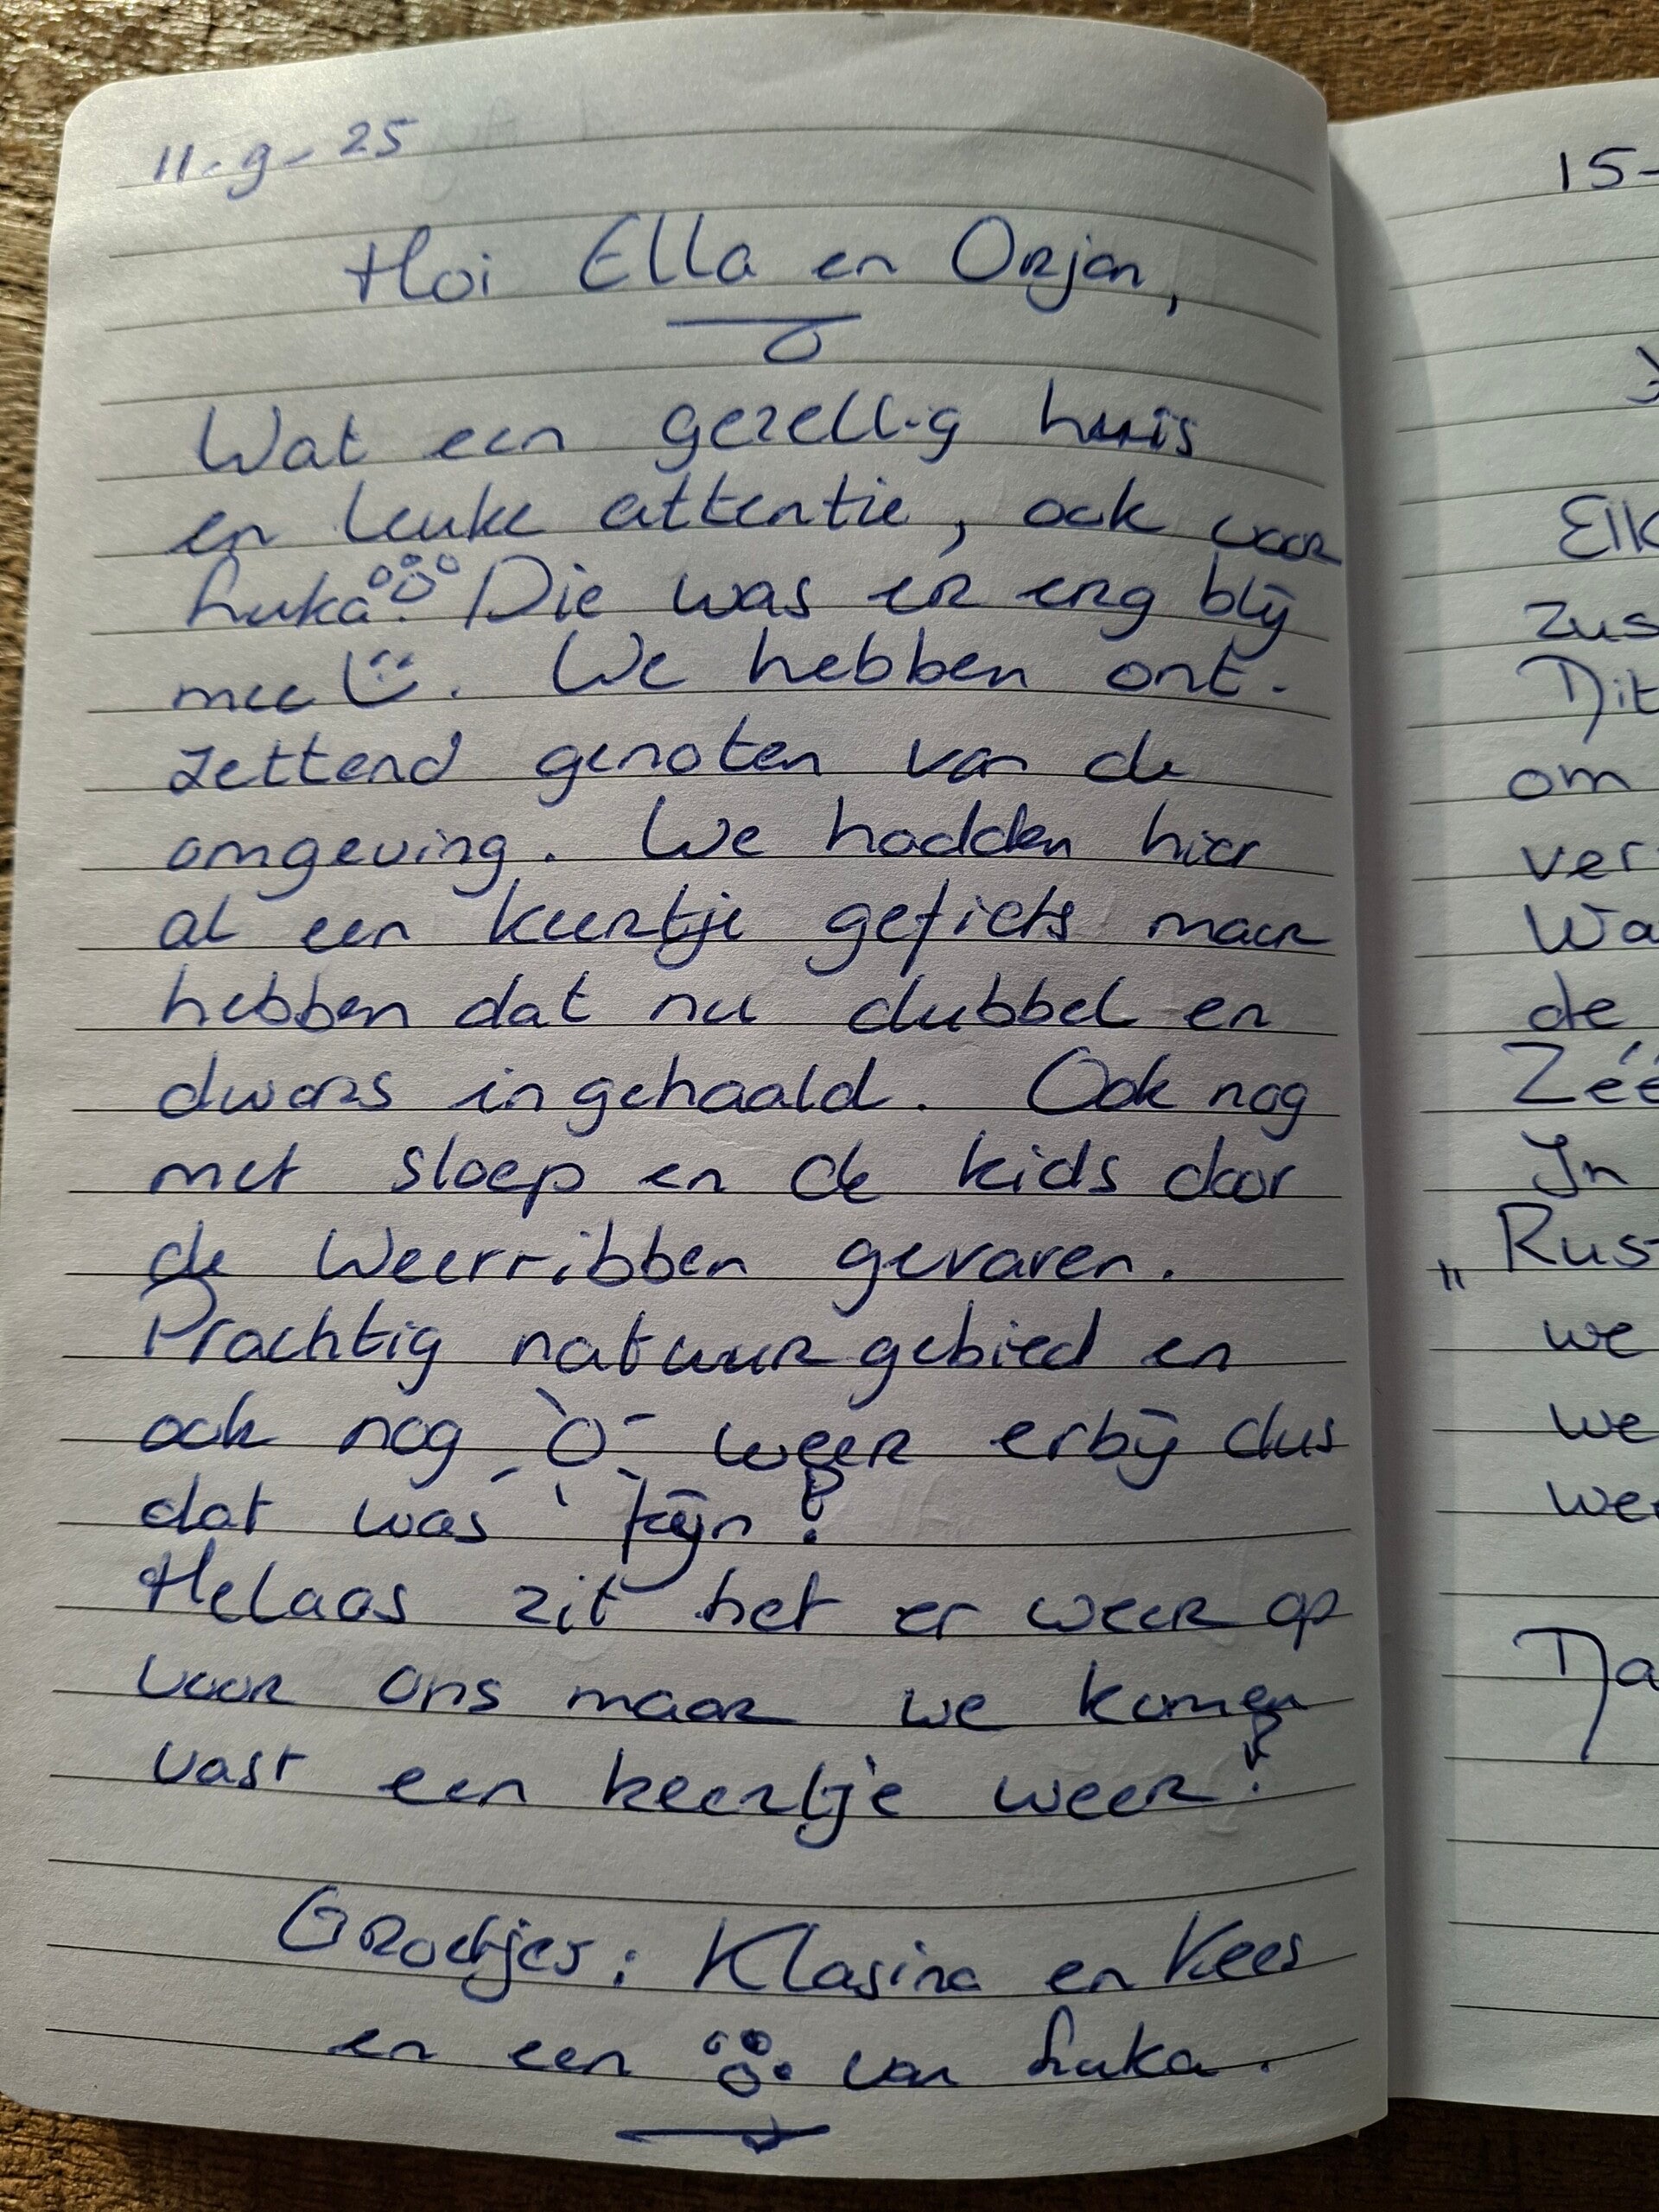 11-9-25
Hoi Ella en Orjan,
Wat een gezellig huis
en leuke attentie, ook voor
Luka. Die was er erg blij
mee. We hebben ont-
zettend genoten van de
omgeving. We hadden hier
al een keertje gefietst maar
hebben dat nu dubbel en
dwars ingehaald. Ook nog
met sloep en de kids door
de Weerribben gevaren.
Prachtig natuurgebied en
ook nog weer erbij dus
dat was fijn!
Helaas zit het er weer op
voor ons maar we komen
vast een keertje weer!
Groetjes: Klasina en Kees
en een van Luka.
15-
Elk
zus
Dit
om
ver
Wa
de
Zéé
In
"Rus
we
we
we
Da